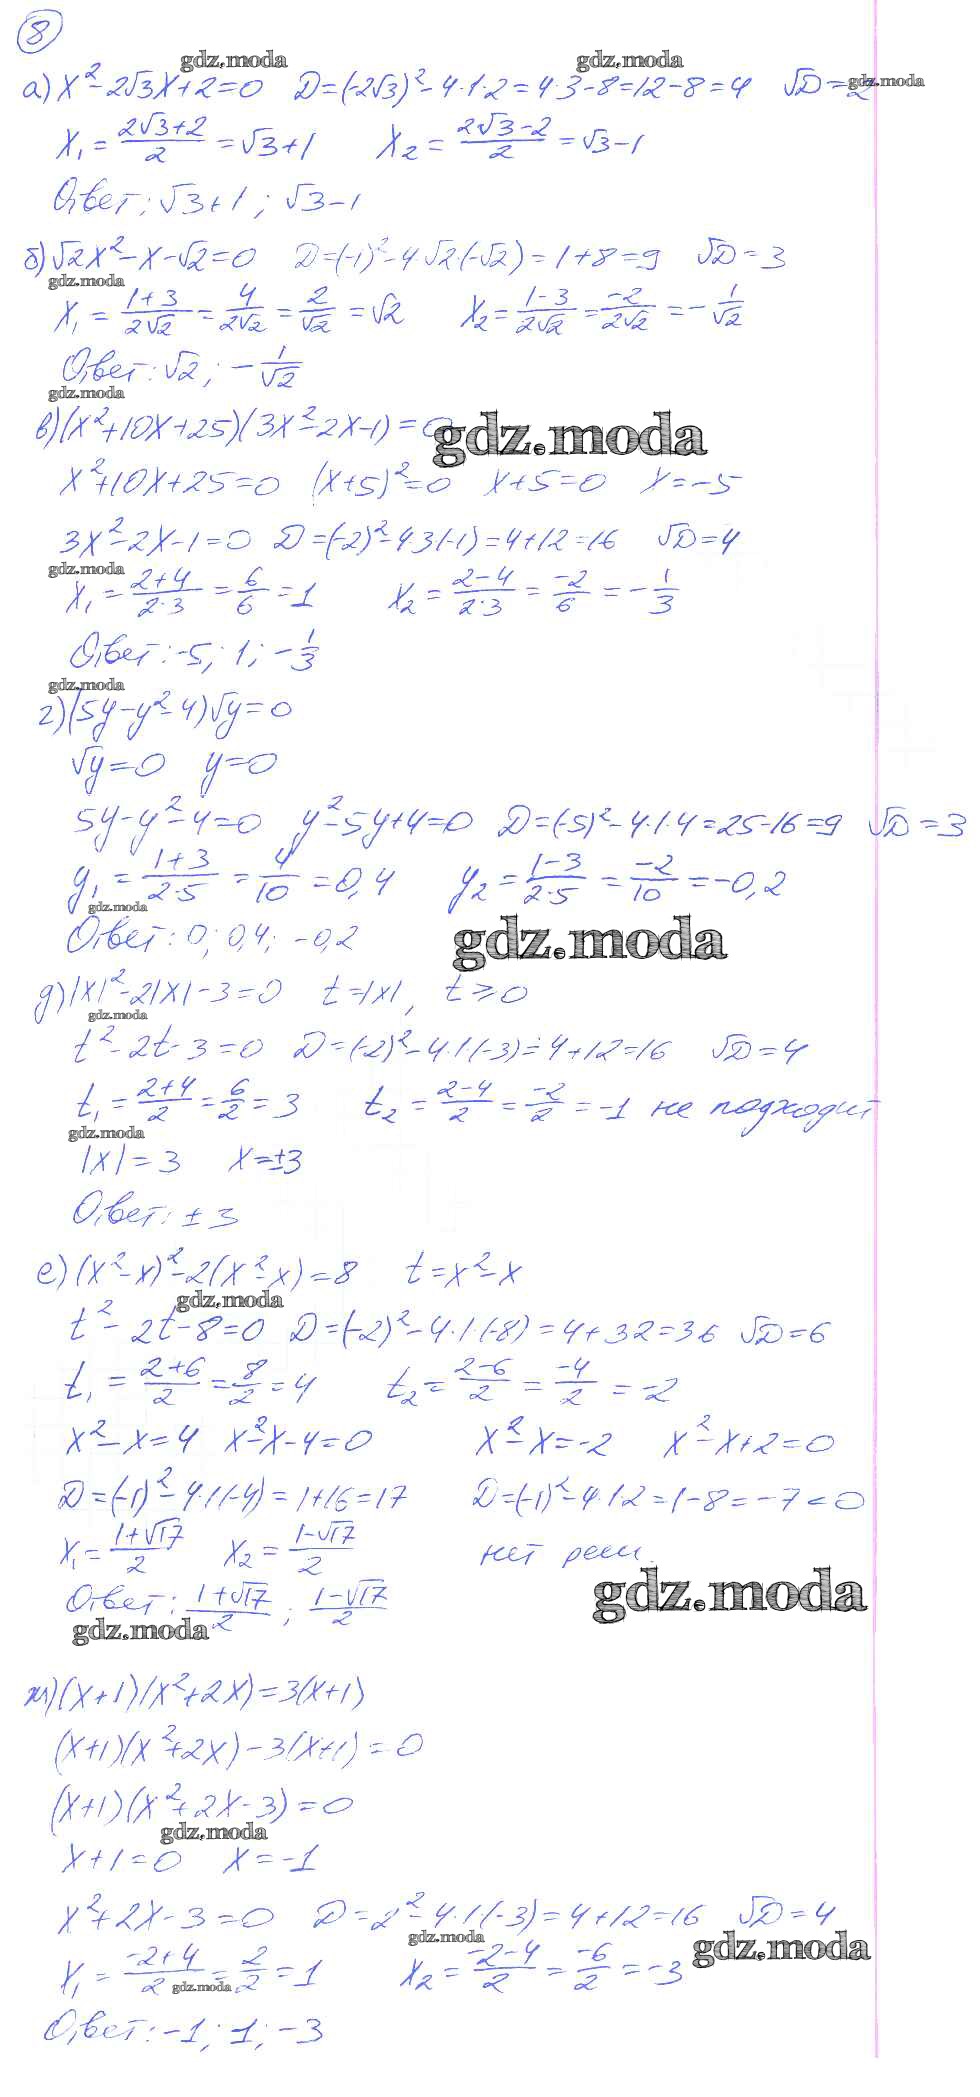 8
gdz.moda gdz.moda
а) x² - 2√3x + 2 = 0 D = (-2√3)² - 4·1·2 = 4·3 - 8 = 12 - 8 = 4 √D = 2 gdz.moda
x₁ = (2√3+2)/2 = √3+1 x₂ = (2√3-2)/2 = √3-1
Ответ: √3+1; √3-1
б) √2x² - x - √2 = 0 D = (-1)² - 4√2·(-√2) = 1+8 = 9 √D = 3
gdz.moda
x₁ = (1+3)/(2√2) = 4/(2√2) = 2/√2 = √2 x₂ = (1-3)/(2√2) = -2/(2√2) = -1/√2
Ответ: √2; -1/√2
gdz.moda
в) (x²+10x+25)(3x²-2x-1) = 0 gdz.moda
x²+10x+25=0 (x+5)²=0 x+5=0 x=-5
3x²-2x-1=0 D=(-2)²-4·3(-1)=4+12=16 √D=4
gdz.moda
x₁ = (2+4)/(2·3) = 6/6 = 1 x₂ = (2-4)/(2·3) = -2/6 = -1/3
Ответ: -5; 1; -1/3
gdz.moda
г) (5y-y²-4)√y=0
√y=0 y=0
5y-y²-4=0 y²-5y+4=0 D=(-5)²-4·1·4=25-16=9 √D=3
y₁ = (1+3)/(2·5) = 4/10 = 0,4 y₂ = (1-3)/(2·5) = -2/10 = -0,2
gdz.moda
Ответ: 0; 0,4; -0,2 gdz.moda
д) |x|²-2|x|-3=0 t=|x|, t≥0
gdz.moda
t²-2t-3=0 D=(-2)²-4·1(-3)=4+12=16 √D=4
t₁ = (2+4)/2 = 6/2 = 3 t₂ = (2-4)/2 = -2/2 = -1 не подходит
gdz.moda
|x|=3 x=±3
Ответ: ±3
е) (x²-x)²-2(x²-x)=8 t=x²-x
gdz.moda
t²-2t-8=0 D=(-2)²-4·1(-8)=4+32=36 √D=6
t₁ = (2+6)/2 = 8/2 = 4 t₂ = (2-6)/2 = -4/2 = -2
x²-x=4 x²-x-4=0 x²-x=-2 x²-x+2=0
D=(-1)²-4·1(-4)=1+16=17 D=(-1)²-4·1·2=1-8=-7<0
x₁ = (1+√17)/2 x₂ = (1-√17)/2 нет реш.
Ответ: (1+√17)/2; (1-√17)/2 gdz.moda
gdz.moda
ж) (x+1)(x²+2x)=3(x+1)
(x+1)(x²+2x)-3(x+1)=0
(x+1)(x²+2x-3)=0
gdz.moda
x+1=0 x=-1
x²+2x-3=0 D=2²-4·1(-3)=4+12=16 √D=4
gdz.moda gdz.moda
x₁ = (-2+4)/2 = 2/2 = 1 x₂ = (-2-4)/2 = -6/2 = -3
gdz.moda
Ответ: -1; 1; -3